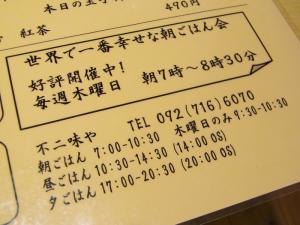 本日の玉子
490円
紅茶
世界で一番幸せな朝ごはん会
好評開催中!
毎週木曜日 朝7時〜8時30分
不二味や TEL 092(716)6070
朝ごはん 7:00-10:30 木曜日のみ9:30-10:30
昼ごはん 10:30-14:30 (14:00 OS)
夕ごはん 17:00-20:30 (20:00 OS)